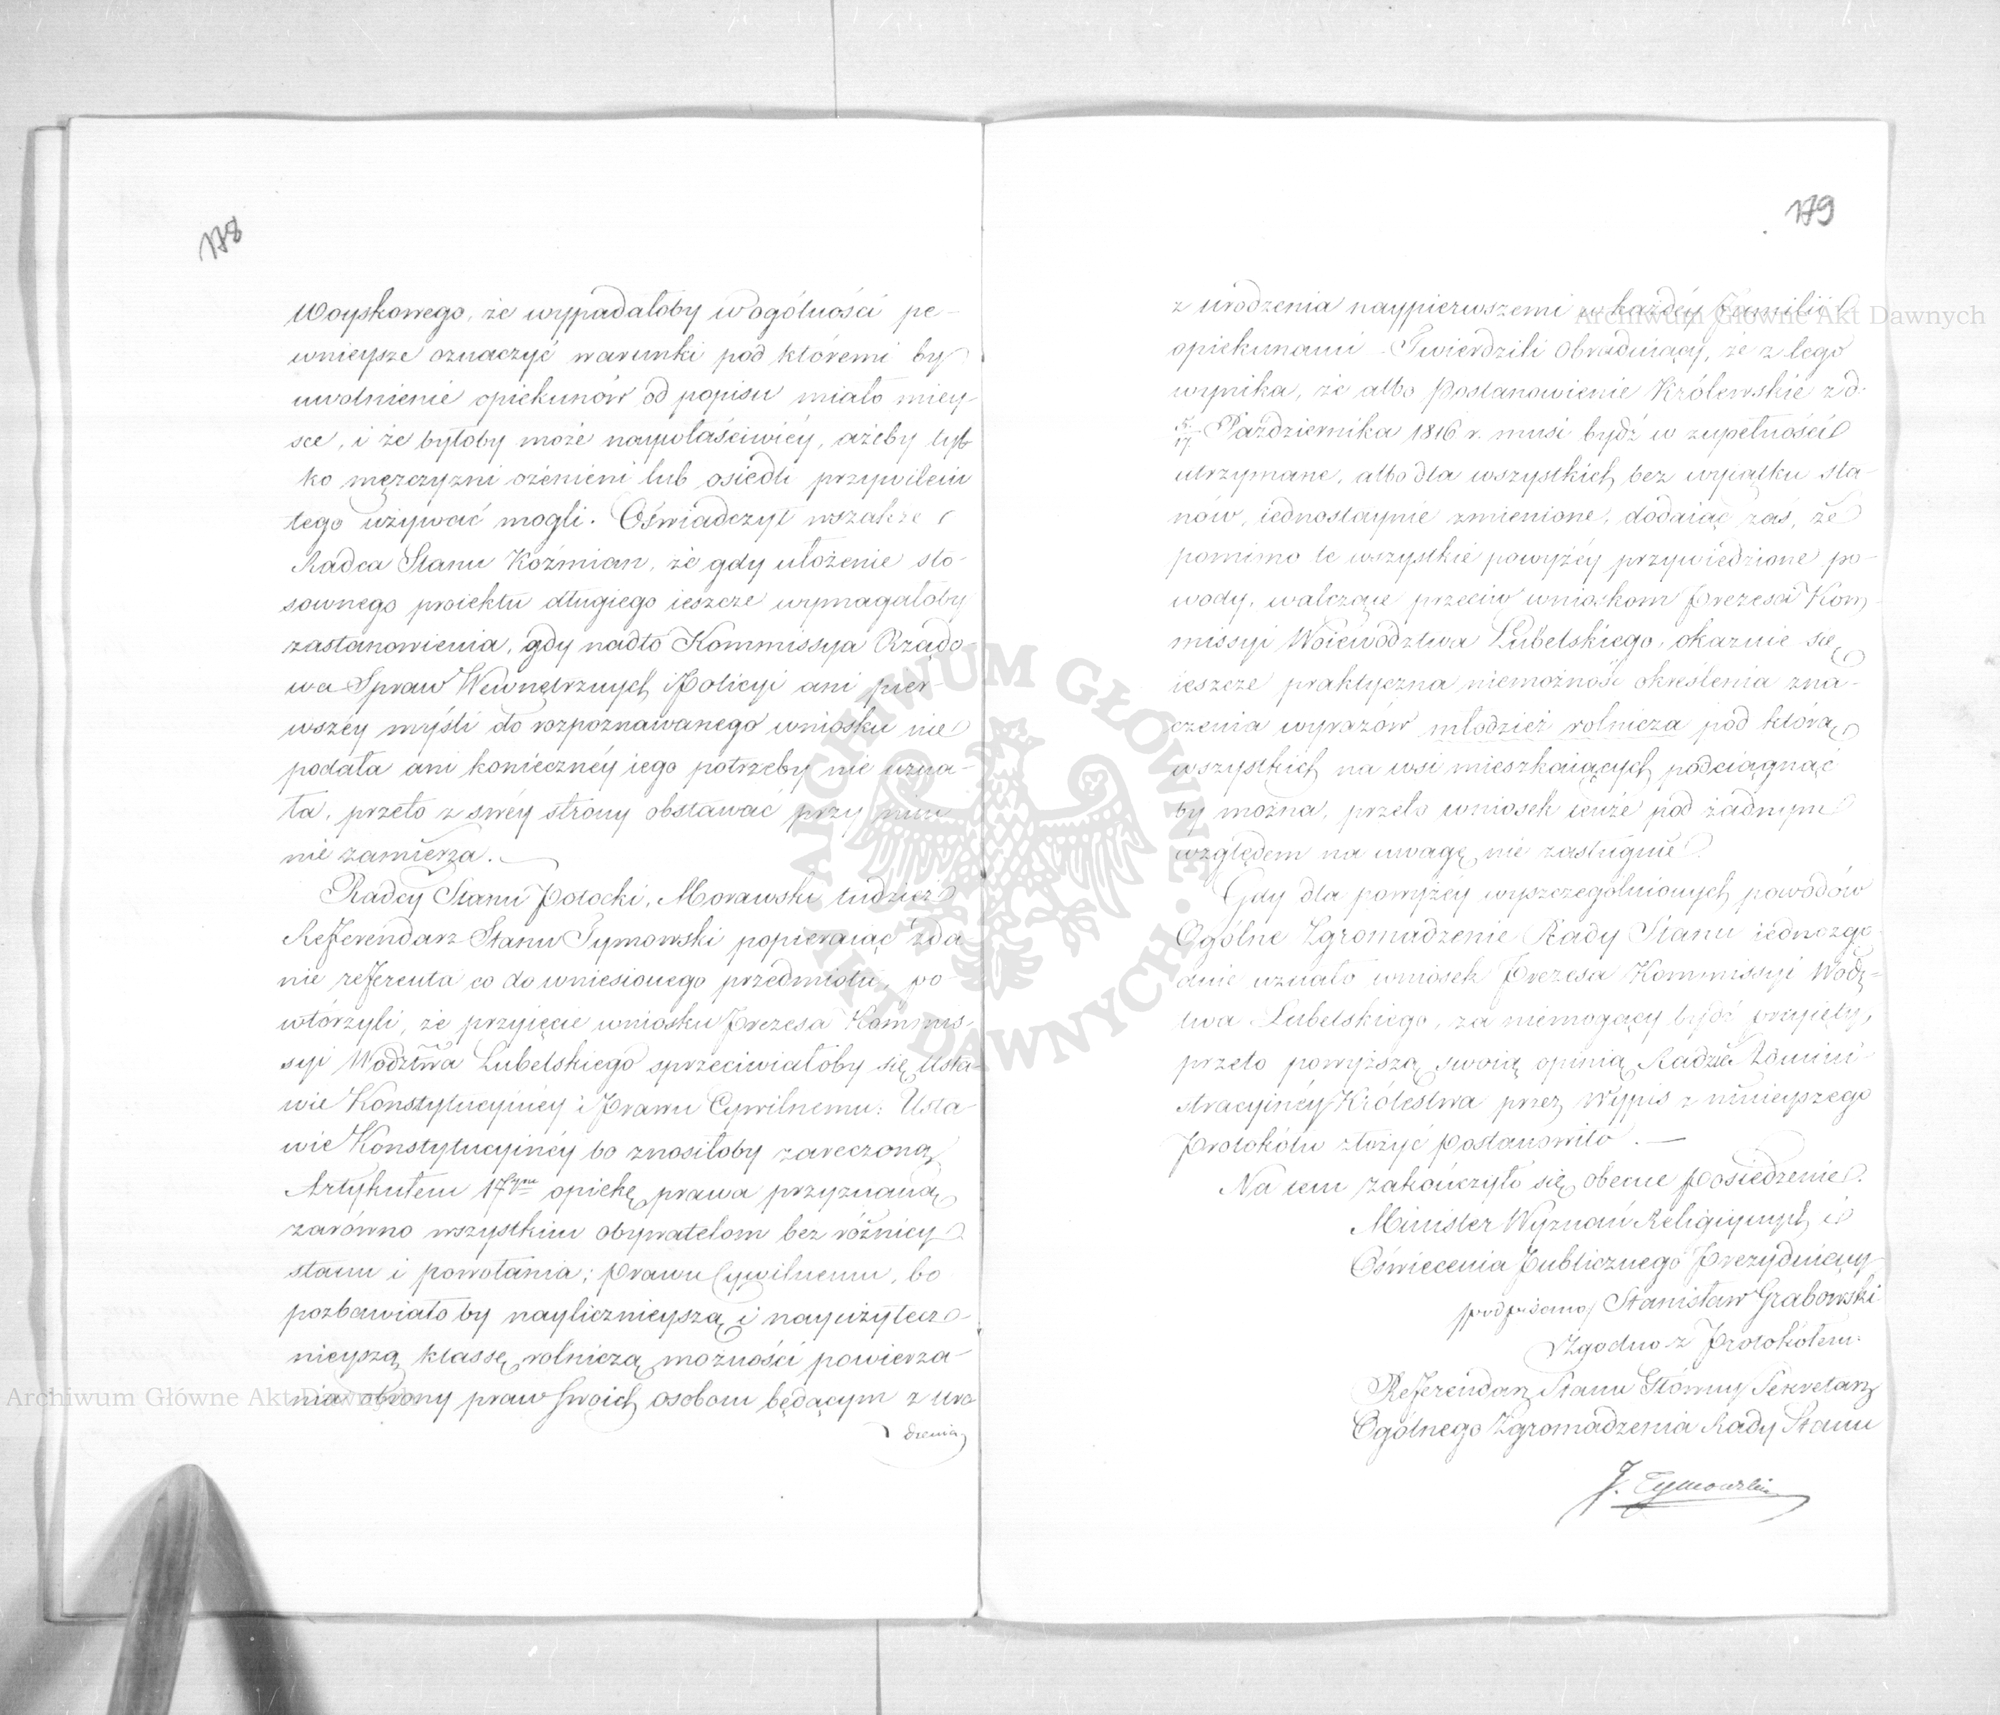 178
Woyskowego, że wypadałoby w ogólności pe-
wnieysze oznaczyć warunki pod któremi by
uwolnienie opiekunów od popisu miało miey-
sce, i że byłoby może naywłaściwiéy, ażeby tyl-
ko mężczyzni ożenieni lub osiedli przywileiu
tego używać mogli. Oświadczył wszakże
Radca Stanu Koźmian, że gdy ułożenie sto-
sownego proiektu długiego ieszcze wymagałoby
zastanowienia, gdy nadto Kommissya Rządo-
wa Spraw Wewnętrznych i Policyi ani pier-
wszéy myśli do rozpoznawanego wniosku nie
podała ani koniecznéy iego potrzeby nie uzna-
ła, przeto z swéy strony obstawać przy nim
nie zamierza.
Radcy Stanu Potocki, Morawski tudzież
Referendarz Stanu Tymowski popieraiąc zda
nie referenta co do wniesionego przedmiotu, po-
wtórzyli, że przyięcie wniosku Prezesa Kommis-
syi Wodztwa Lubelskiego sprzeciwiałoby się Usta-
wie Konstytucyinéy i Prawu Cywilnemu: Usta
wie Konstytucyinéy bo znosiłoby zaręczoną
Artykułem 17tym opiekę prawa przyznaną
zarówno wszystkim obywatelom bez różnicy
stanu i powołania; prawu Cywilnemu, bo
pozbawiało by naylicznieyszą i nayużytecz-
nieyszą klassę rolniczą możności powierza-
nia obrony praw swoich osobom będącym z uro
dzenia
179
z urodzenia naypierwszemi w każdéy familii
opiekunami. Twierdzili Obraduiący, że z tego
wynika, że albo Postanowienie Królewskie z d.
5/17 Października 1816 r. musi bydź w zupełności
utrzymane, albo dla wszystkich bez wyiątku sta-
nów, iednostaynie zmienione, dodaiąc zaś, że
pomimo te wszystkie powyżéy przywiedzione po-
wody, walczące przeciw wnioskom Prezesa Kom-
missyi Woiewództwa Lubelskiego, okazuie się
ieszcze praktyczna niemożność określenia zna-
czenia wyrazów młodzież rolnicza pod którą
wszystkich na wsi mieszkaiących podciągnąć
by można, przeto wniosek tenże pod żadnym
względem na uwagę nie zasługuie.
Gdy dla powyżéy wyszczególnionych powodów
Ogólne Zgromadzenie Rady Stanu iednozgo-
dnie uznało wniosek Prezesa Kommissyi Wodz-
twa Lubelskiego, za niemogący bydź przyięty,
przeto powyższą swoią opinią Radzie Admini-
stracyinéy Królestwa przez Wypis z ninieyszego
Protokółu złożyć postanowiło.
Na tem zakończyło się obecne Posiedzenie.
Minister Wyznań Religiynych i
Oświecenia Publicznego Prezyduiący
podpisano Stanisław Grabowski
Zgodno z Protokółem:
Referendarz Stanu Główny Sekretarz
Ogólnego Zgromadzenia Rady Stanu
J. Tymowski
Archiwum Główne Akt Dawnych
Archiwum Główne Akt Dawnych
ARCHIWUM GŁÓWNE AKT DAWNYCH